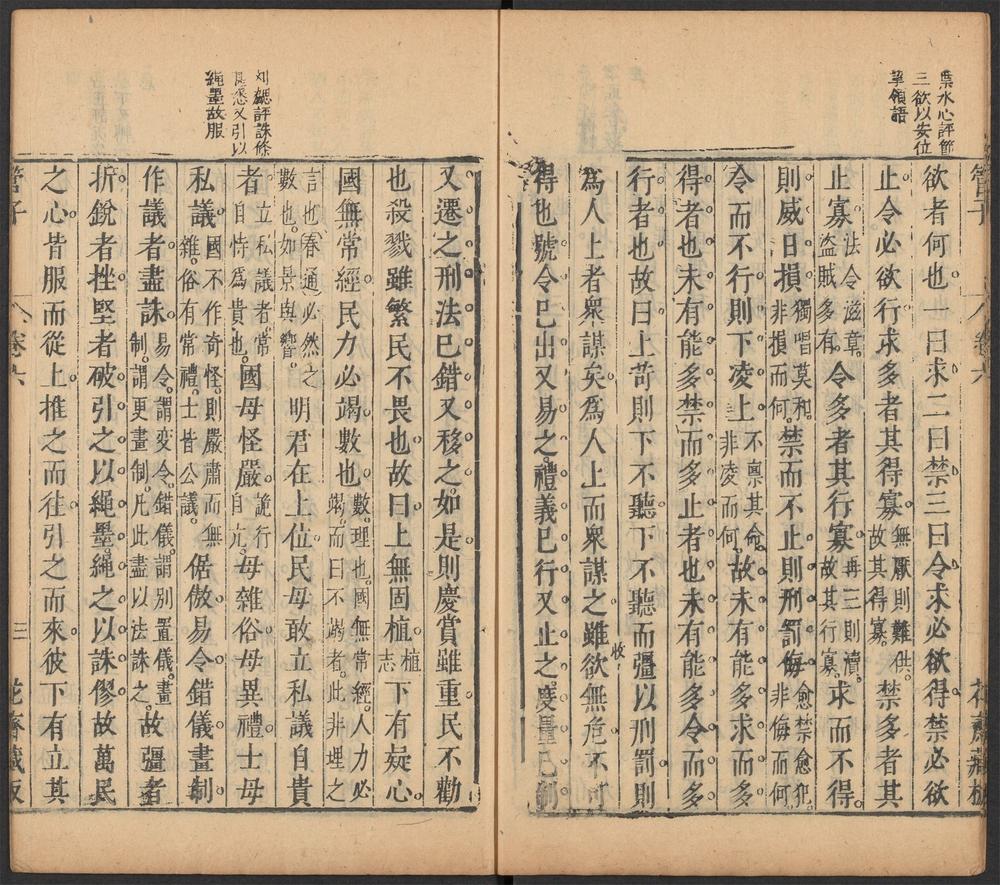 葉水心評節
三欲以安位
挈領語
管子
卷六
花齋藏板
欲者何也一曰求二曰禁三曰令求必欲得禁必欲
止令必欲行求多者其得寡無厭則難供故其得寡禁多者其
止寡法令滋章盜賊多有令多者其行寡再三則瀆故其行寡求而不得
則威日損獨唱莫和非損而何禁而不止則刑罰侮愈禁愈犯非侮而何
令而不行則下凌上不稟其命非凌而何故未有能多求而多
得者也未有能多禁而多止者也未有能多令而多
行者也故曰上苛則下不聽下不聽而彊以刑罰則
為人上者衆謀矣為人上而衆謀之雖欲無危不可
得也號令已出又易之禮義已行又止之度量已制
又遷之刑法已錯又移之如是則慶賞雖重民不勸
也殺戮雖繁民不畏也故曰上無固植植志下有疑心
國無常經民力必竭數也數理也國無常經人力必竭而曰不竭者此非理之
言也春通必然之數也如景與響明君在上位民毋敢立私議自貴
者立私議者常自恃為貴也國毋怪嚴詭行自亢毋雜俗毋異禮士毋
私議國不作奇怪則嚴肅而無雜俗有常禮士皆公議倨傲易令錯儀畫制
作議者盡誅易令謂變令錯儀謂別置儀畫制謂更畫制凡此盡以法誅之故彊者
折銳者挫堅者破引之以繩墨繩之以誅僇故萬民
之心皆服而從上推之而往引之而來彼下有立其
劉勰評誅條
具悉又引以
繩墨故服
管子
卷六
三
花齋藏板